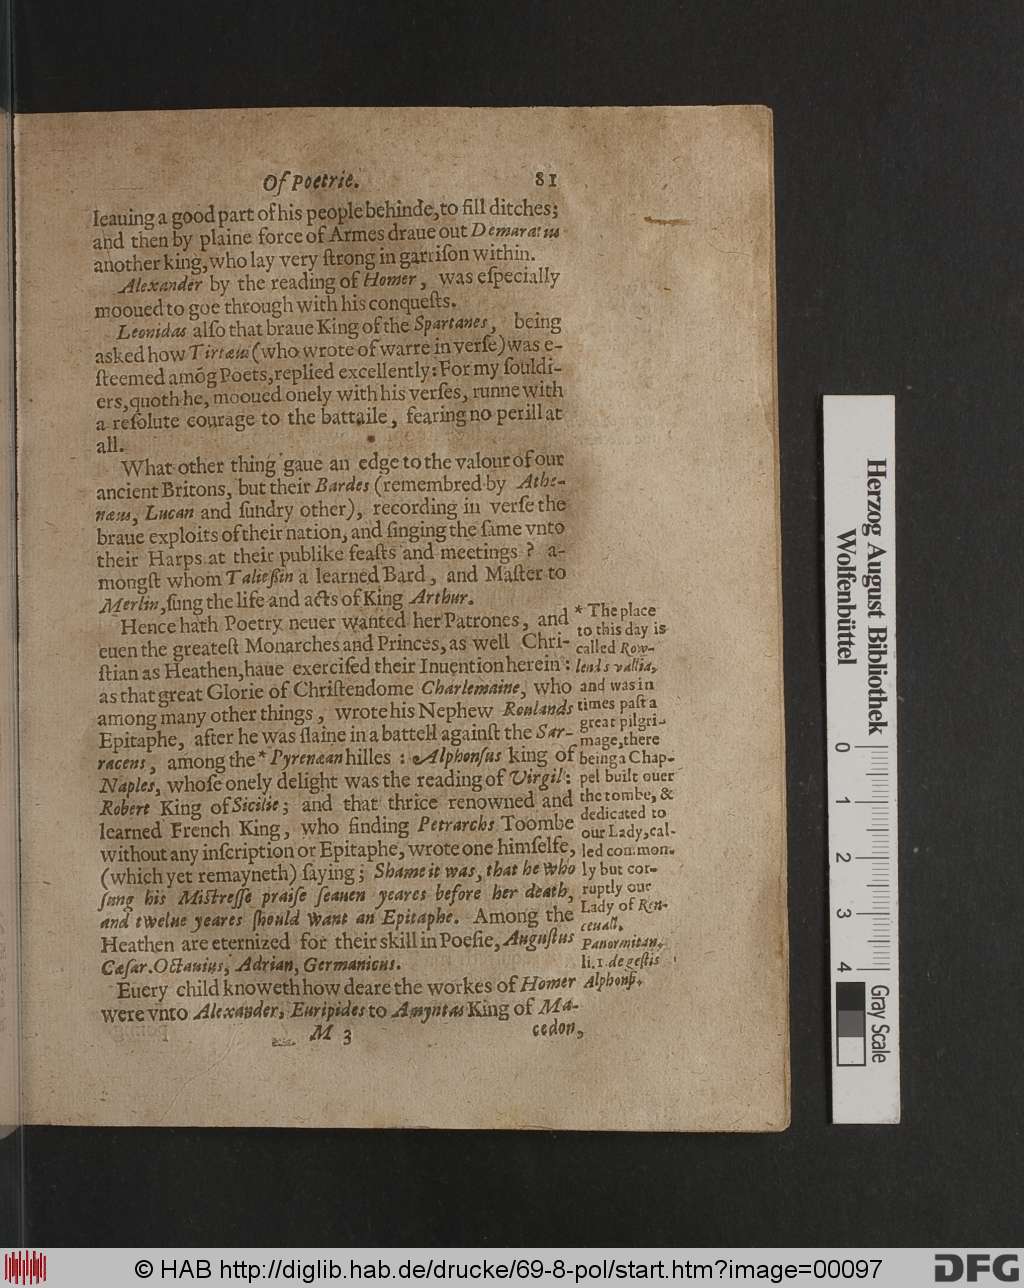 Of Poetrie. 81
leauing a good part of his people behinde, to fill ditches;
and then by plaine force of Armes draue out Demaratus
another king, who lay very ſtrong in garriſon within.
Alexander by the reading of Homer, was eſpecially
mooued to goe through with his conqueſts.
Leonidas alſo that braue King of the Spartanes, being
asked how Tirtæus (who wrote of warre in verſe) was e-
ſteemed amõg Poets, replied excellently: For my ſouldi-
ers, quoth he, mooued onely with his verſes, runne with
a reſolute courage to the battaile, fearing no perill at
all.
What other thing gaue an edge to the valour of our
ancient Britons, but their Bardes (remembred by Athe-
næus, Lucan and ſundry other), recording in verſe the
braue exploits of their nation, and ſinging the ſame vnto
their Harps at their publike feaſts and meetings? a-
mongſt whom Taließin a learned Bard, and Maſter to
Merlin, ſung the life and acts of King Arthur.
Hence hath Poetry neuer wanted her Patrones, and
euen the greateſt Monarches and Princes, as well Chri-
ſtian as Heathen, haue exerciſed their Inuention herein:
as that great Glorie of Chriſtendome Charlemaine, who
among many other things, wrote his Nephew Roulands
Epitaphe, after he was ſlaine in a battell againſt the Sar-
racens, among the * Pyrenæan hilles: Alphonſus king of
Naples, whoſe onely delight was the reading of Virgil:
Robert King of Sicilie; and that thrice renowned and
learned French King, who finding Petrarchs Toombe
without any inſcription or Epitaphe, wrote one himſelfe,
(which yet remayneth) ſaying; Shame it was, that he who
ſung his Miſtreſſe praiſe ſeauen yeares before her death,
and twelue yeares ſhould want an Epitaphe. Among the
Heathen are eternized for their skill in Poeſie, Auguſtus
Cæſar. Octauius, Adrian, Germanicus.
Euery child knoweth how deare the workes of Homer
were vnto Alexander, Euripides to Amyntas King of Ma-
M 3 cedon,
* The place
to this day is
called Row-
lends vallia,
and was in
times paſt a
great pilgri-
mage, there
being a Chap-
pel built ouer
the tombe, &
dedicated to
our Lady, cal-
led common-
ly but cor-
ruptly our
Lady of Ron-
ceuall.
Panormitan.
li. 1. de geſtis
Alphonſi.
Herzog August Bibliothek
Wolfenbüttel
0
1
2
3
4
Gray Scale
© HAB http://diglib.hab.de/drucke/69-8-pol/start.htm?image=00097
DFG